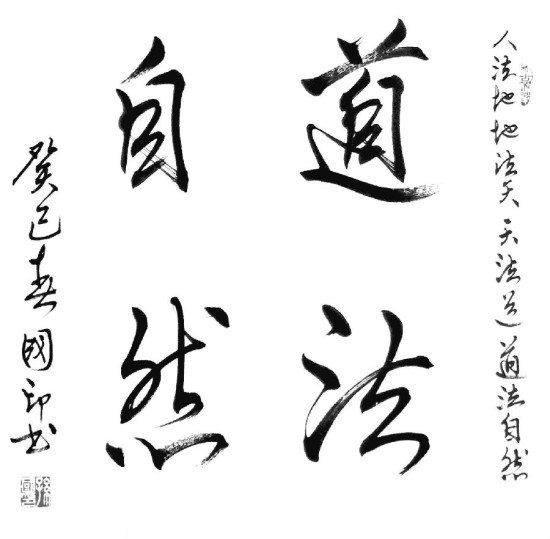 人法地地法天天法道道法自然
道法
自然
癸巳春國印书